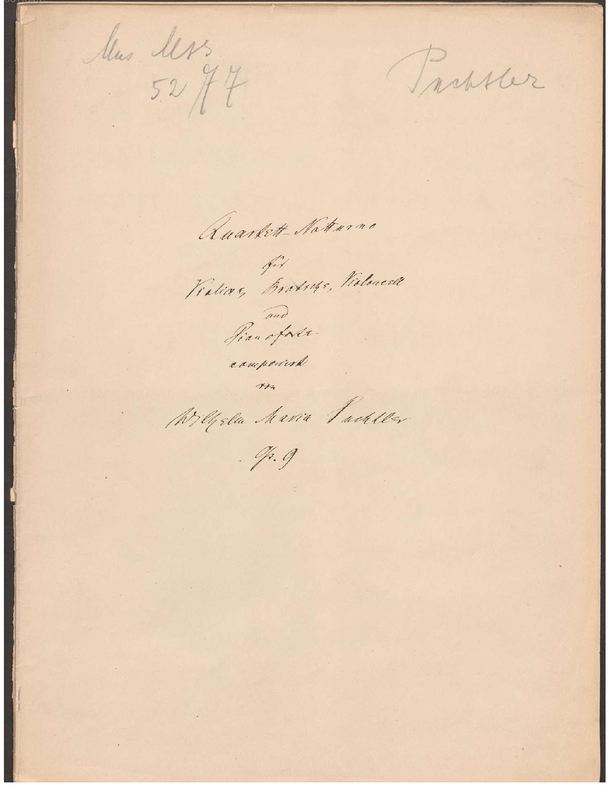 Mus Mss
5277
Puchtler
Quartett-Notturno
für
Violine, Bratsche, Violoncell
und
Pianoforte
componirt
von
Wilhelm Maria Puchtler
Op. 9